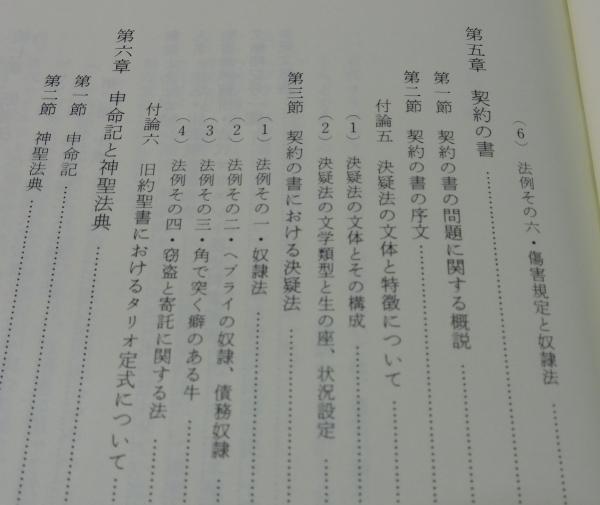 (6) 法例その六・傷害規定と奴隷法
第五章 契約の書
第一節 契約の書の問題に関する概説
第二節 契約の書の序文
付論五 決疑法の文体と特徴について
(1) 決疑法の文体とその構成
(2) 決疑法の文学類型と生の座、状況設定
第三節 契約の書における決疑法
(1) 法例その一・奴隷法
(2) 法例その二・ヘブライの奴隷、債務奴隷
(3) 法例その三・角で突く癖のある牛
(4) 法例その四・窃盗と寄託に関する法
付論六 旧約聖書におけるタリオ定式について
第六章 申命記と神聖法典
第一節 申命記
第二節 神聖法典